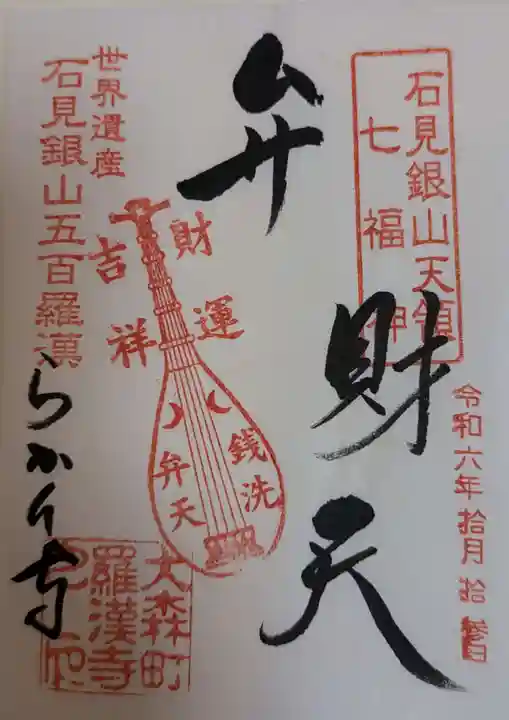 石見銀山天領
七福神
弁財天
令和六年拾月拾参日
財運
吉祥
銭洗
弁天
世界遺産
石見銀山五百羅漢
らかん寺
大森町
羅漢寺